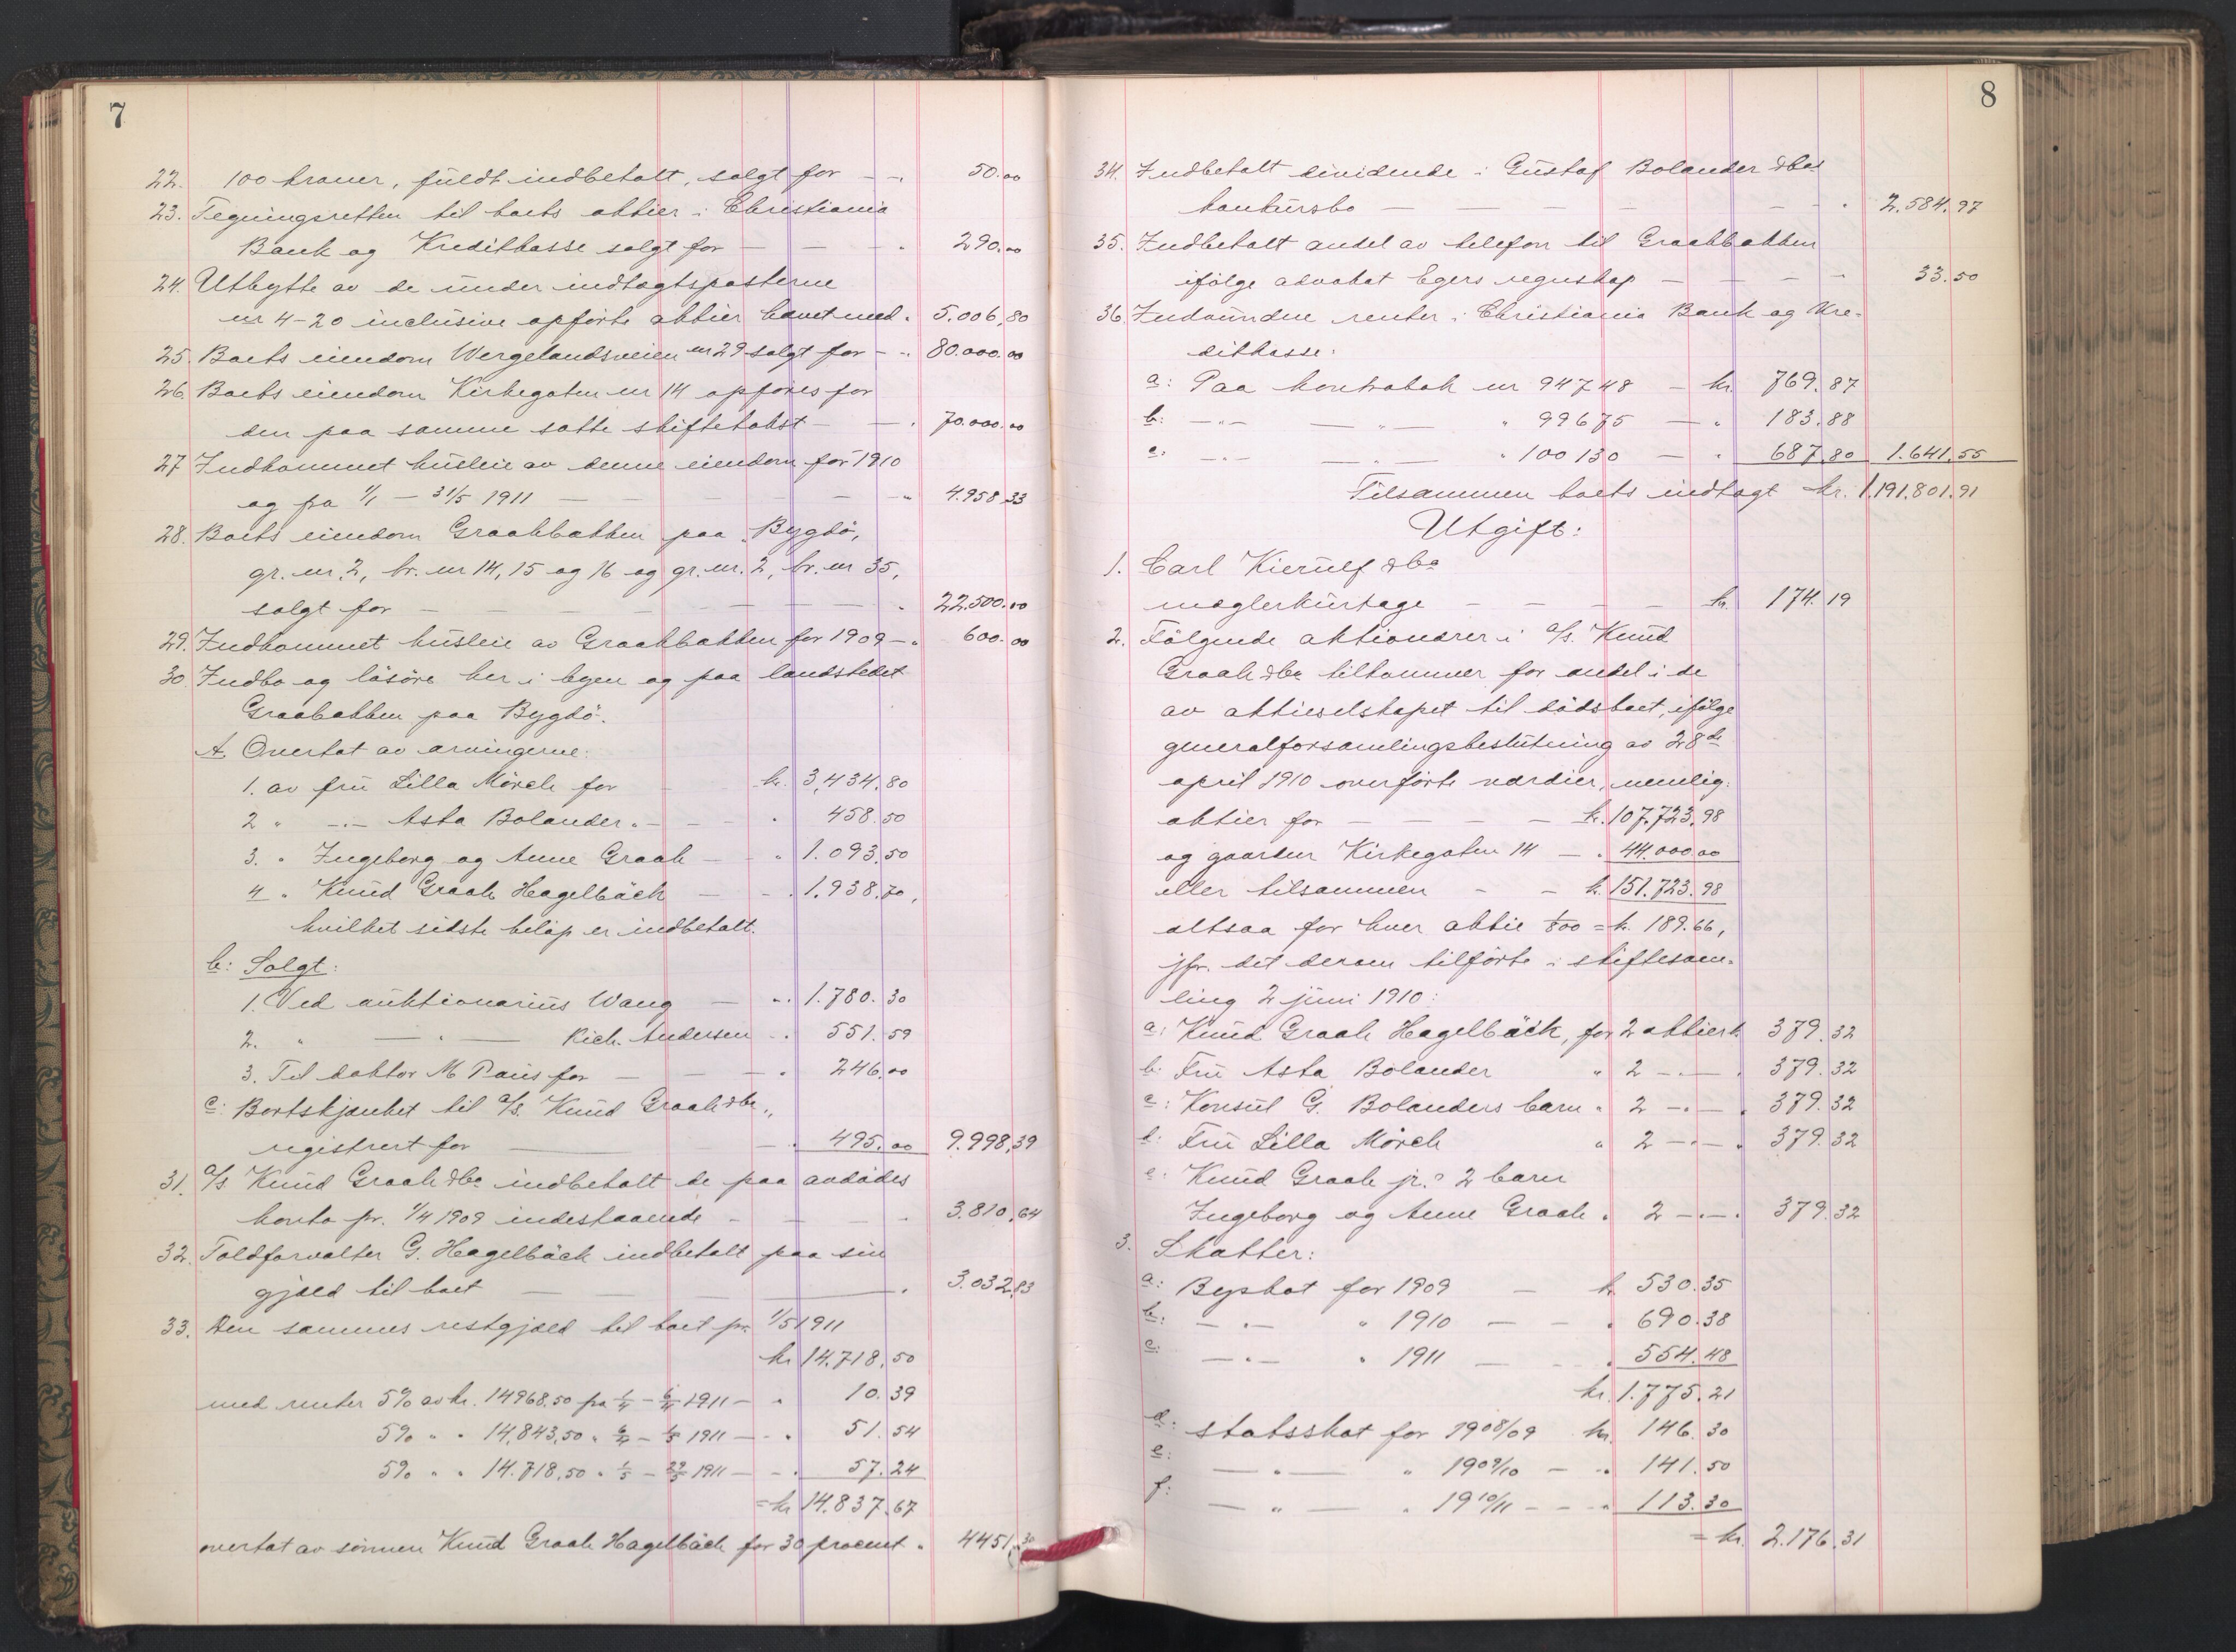 7
22. 100 kroner, fuldt indbetalt, solgt for — „ 50.00
23. Tegningsretten til boets aktier i Christiania
Bank og Kreditkasse solgt for — — „ 290.00
24. Utbytte av de under indtægtsposterne
nr 4-20 inclusive opførte aktier hævet med „ 5.006,80
25. Boets eiendom Wergelandsveien nr 29 solgt for — „ 80.000.00
26. Boets eiendom Kirkegaten nr 14 opføres for
den paa samme satte skiftetakst — — „ 70.000.00
27. Indkommet husleie av denne eiendom for 1910
og fra 1/1 — 31/5 1911 — — — — „ 4.958,33
28. Boets eiendom Graahbakken paa Bygdö,
gr. nr. 2, br. nr 14, 15 og 16 og gr. nr. 2, br. nr 35,
solgt for — — — — — — „ 22.500.00
29. Indkommet husleie av Graahbakken for 1909 — „ 600.00
30. Indbo og lösöre her i byen og paa landstedet
Graabakken paa Bygdö.
A Overtat av arvingerne:
1. av fru Lilla Mörch for — kr. 3,434,80
2 „ —„— Asta Bolander „ — — „ 458.50
3. „ Ingeborg og Anne Graah — „ 1.093.50
4 „ Knud Graah Hagelbäck — — „ 1.938.70,
hvilket sidste belöp er indbetalt.
b: Solgt:
1. Ved auktionarius Wang — „ 1.780.30
2. „ —„— Rich. Andersen „ 551.59
3. Til doktor M Paus for — — „ 246.00
c: Bortskjænket til a/s. Knud Graah & Co.,
registrert for — — „ 495.00 9.998,39
31. a/s. Knud Graah & Co indbetalt de paa avdödes
konto pr. 1/4 1909 indestaaende — — „ 3.810,64
32. Toldforvalter G. Hagelbäck indbetalt paa sin
gjæld til boet — — — — „ 3.032,83
33. Den sammes restgjæld til boet pr. 1/5 1911
kr 14.718.50
med renter 5% av kr. 14968.50 fra 1/4 — 6/4 1911 — „ 10.39
5% „ „ 14,843,50 „ 6/4 — 1/5 1911 — „ 51.54
5% „ „ 14.718,50 „ 1/5 — 29/5 1911 — „ 57.24
= kr 14.837.67
overtat av sönnen Knud Graah Hagelbäck for 30 procent „ 4451,30
8
34. Indbetalt dividende i Gustaf Bolander & Cos
konkursbo — — — — „ 2.584.97
35. Indbetalt andel av telefon til Graahbakken
ifölge advokat Egers regnskap — — — 33.50
36. Indvundne renter i Christiania Bank og Kre-
ditkasse:
a: Paa kontrabok nr 94748 — kr. 769.87
b: —„— —„— „ 99675 — „ 183.88
c: —„— —„— „ 100130 — „ 687.80 1.641.55
Tilsammen boets indtægt kr. 1,191.801.91
Utgift:
1. Carl Kierulf & Co
mæglerkurtage — — — — kr. 174.19
2. Fölgende aktionærer i a/s. Knud
Graah & Co tilkommer for andel i de
av aktieselskapet til dödsboet, ifölge
generalforsamlingsbeslutning av 28de
april 1910 overförte værdier, nemlig:
aktier for — — — — kr. 107.723.98
og gaarden Kirkegaten 14 — „ 44.000.00
eller tilsammen — — kr. 151.723.98
altsaa for hver aktie 1/800 = kr. 189.66,
jfr. det derom tilförte i skiftesam-
ling 2 juni 1910:
a: Knud Graah Hagelbäck, for 2 aktier kr. 379.32
b: Fru Asta Bolander „ 2 —„— „ 379.32
c: Konsul G. Bolanders barn „ 2 —„— „ 379.32
d: Fru Lilla Mörch „ 2 —„— „ 379.32
e: Knud Graah jr.s 2 barn
Ingeborg og Anne Graah „ 2 —„— „ 379.32
3. Skatter:
a: Byskat for 1909 — kr. 530.35
b: —„— „ 1910 — — „ 690.38
c: —„— „ 1911 — „ 554.48
kr. 1.775.21
d: statsskat for 1908/09 kr. 146.30
e: —„— „ 1909/10 — „ 141.50
f: —„— „ 1910/11 — „ 113.30
= kr. 2.176.31